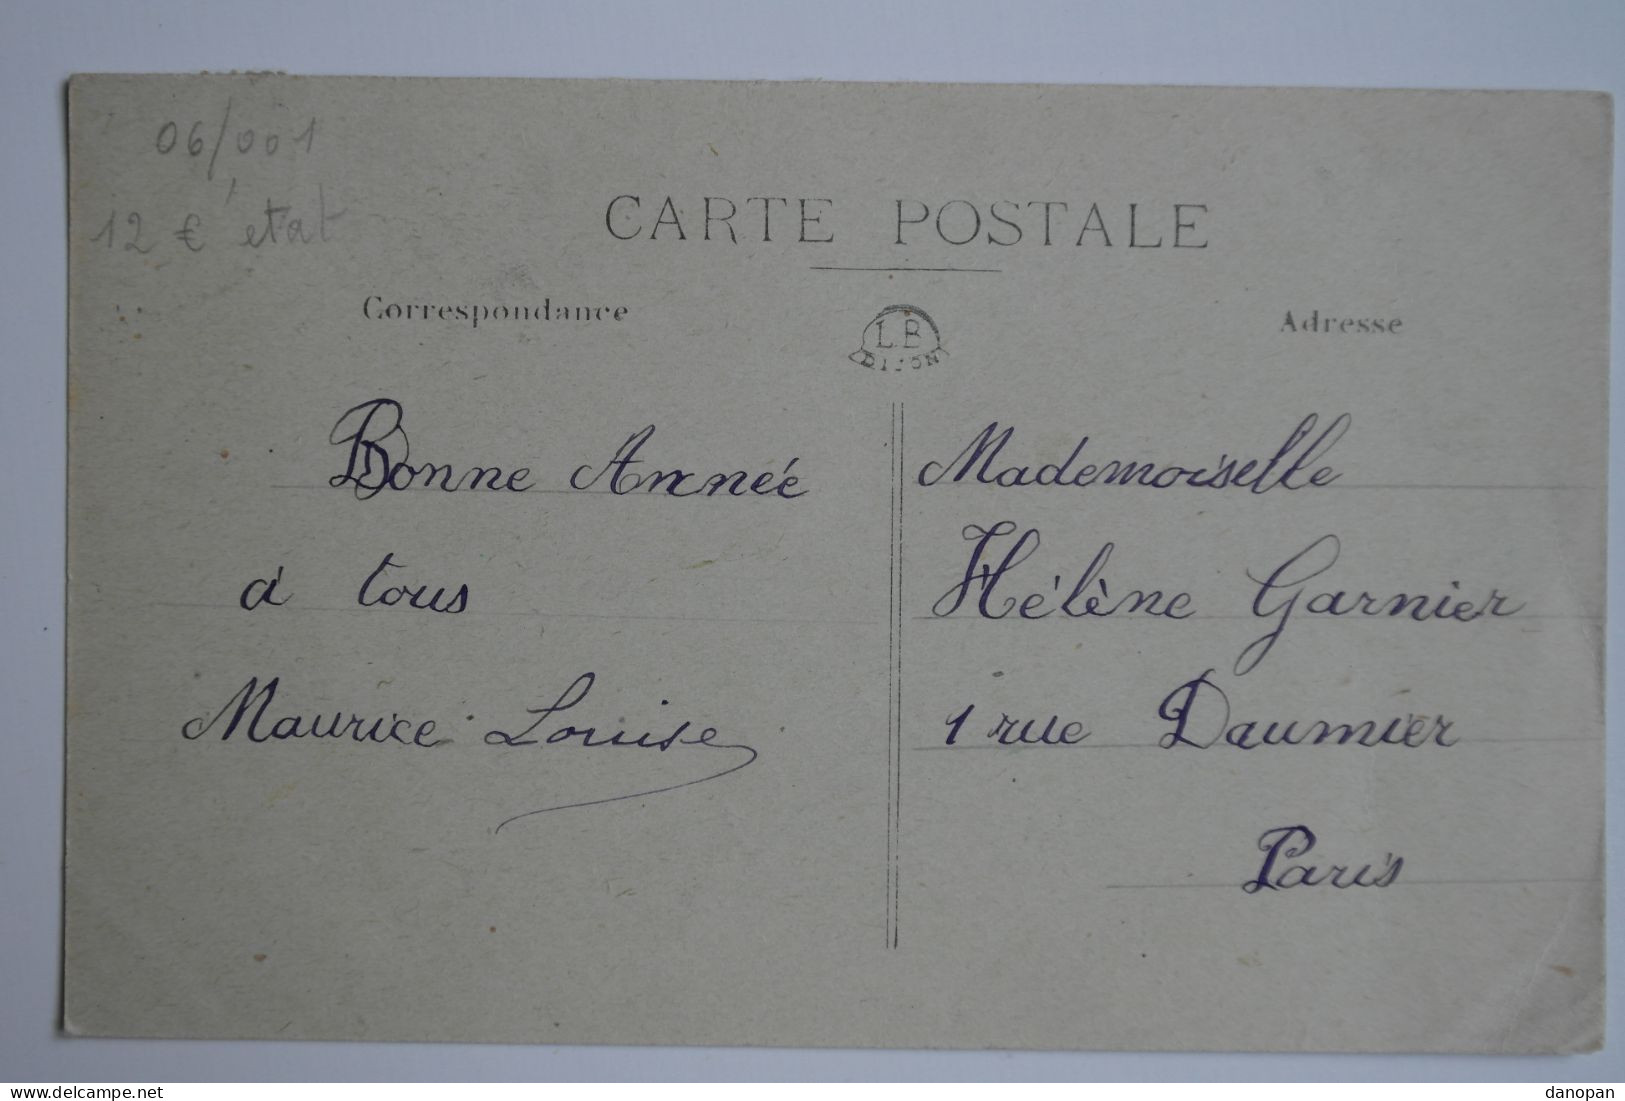 06/001
12 € état
CARTE POSTALE
Correspondance
L.B
DIJON
Adresse
Bonne Année
à tous
Maurice Louise
Mademoiselle
Hélène Garnier
1 rue Daumier
Paris
www.delcampe.net
danopan